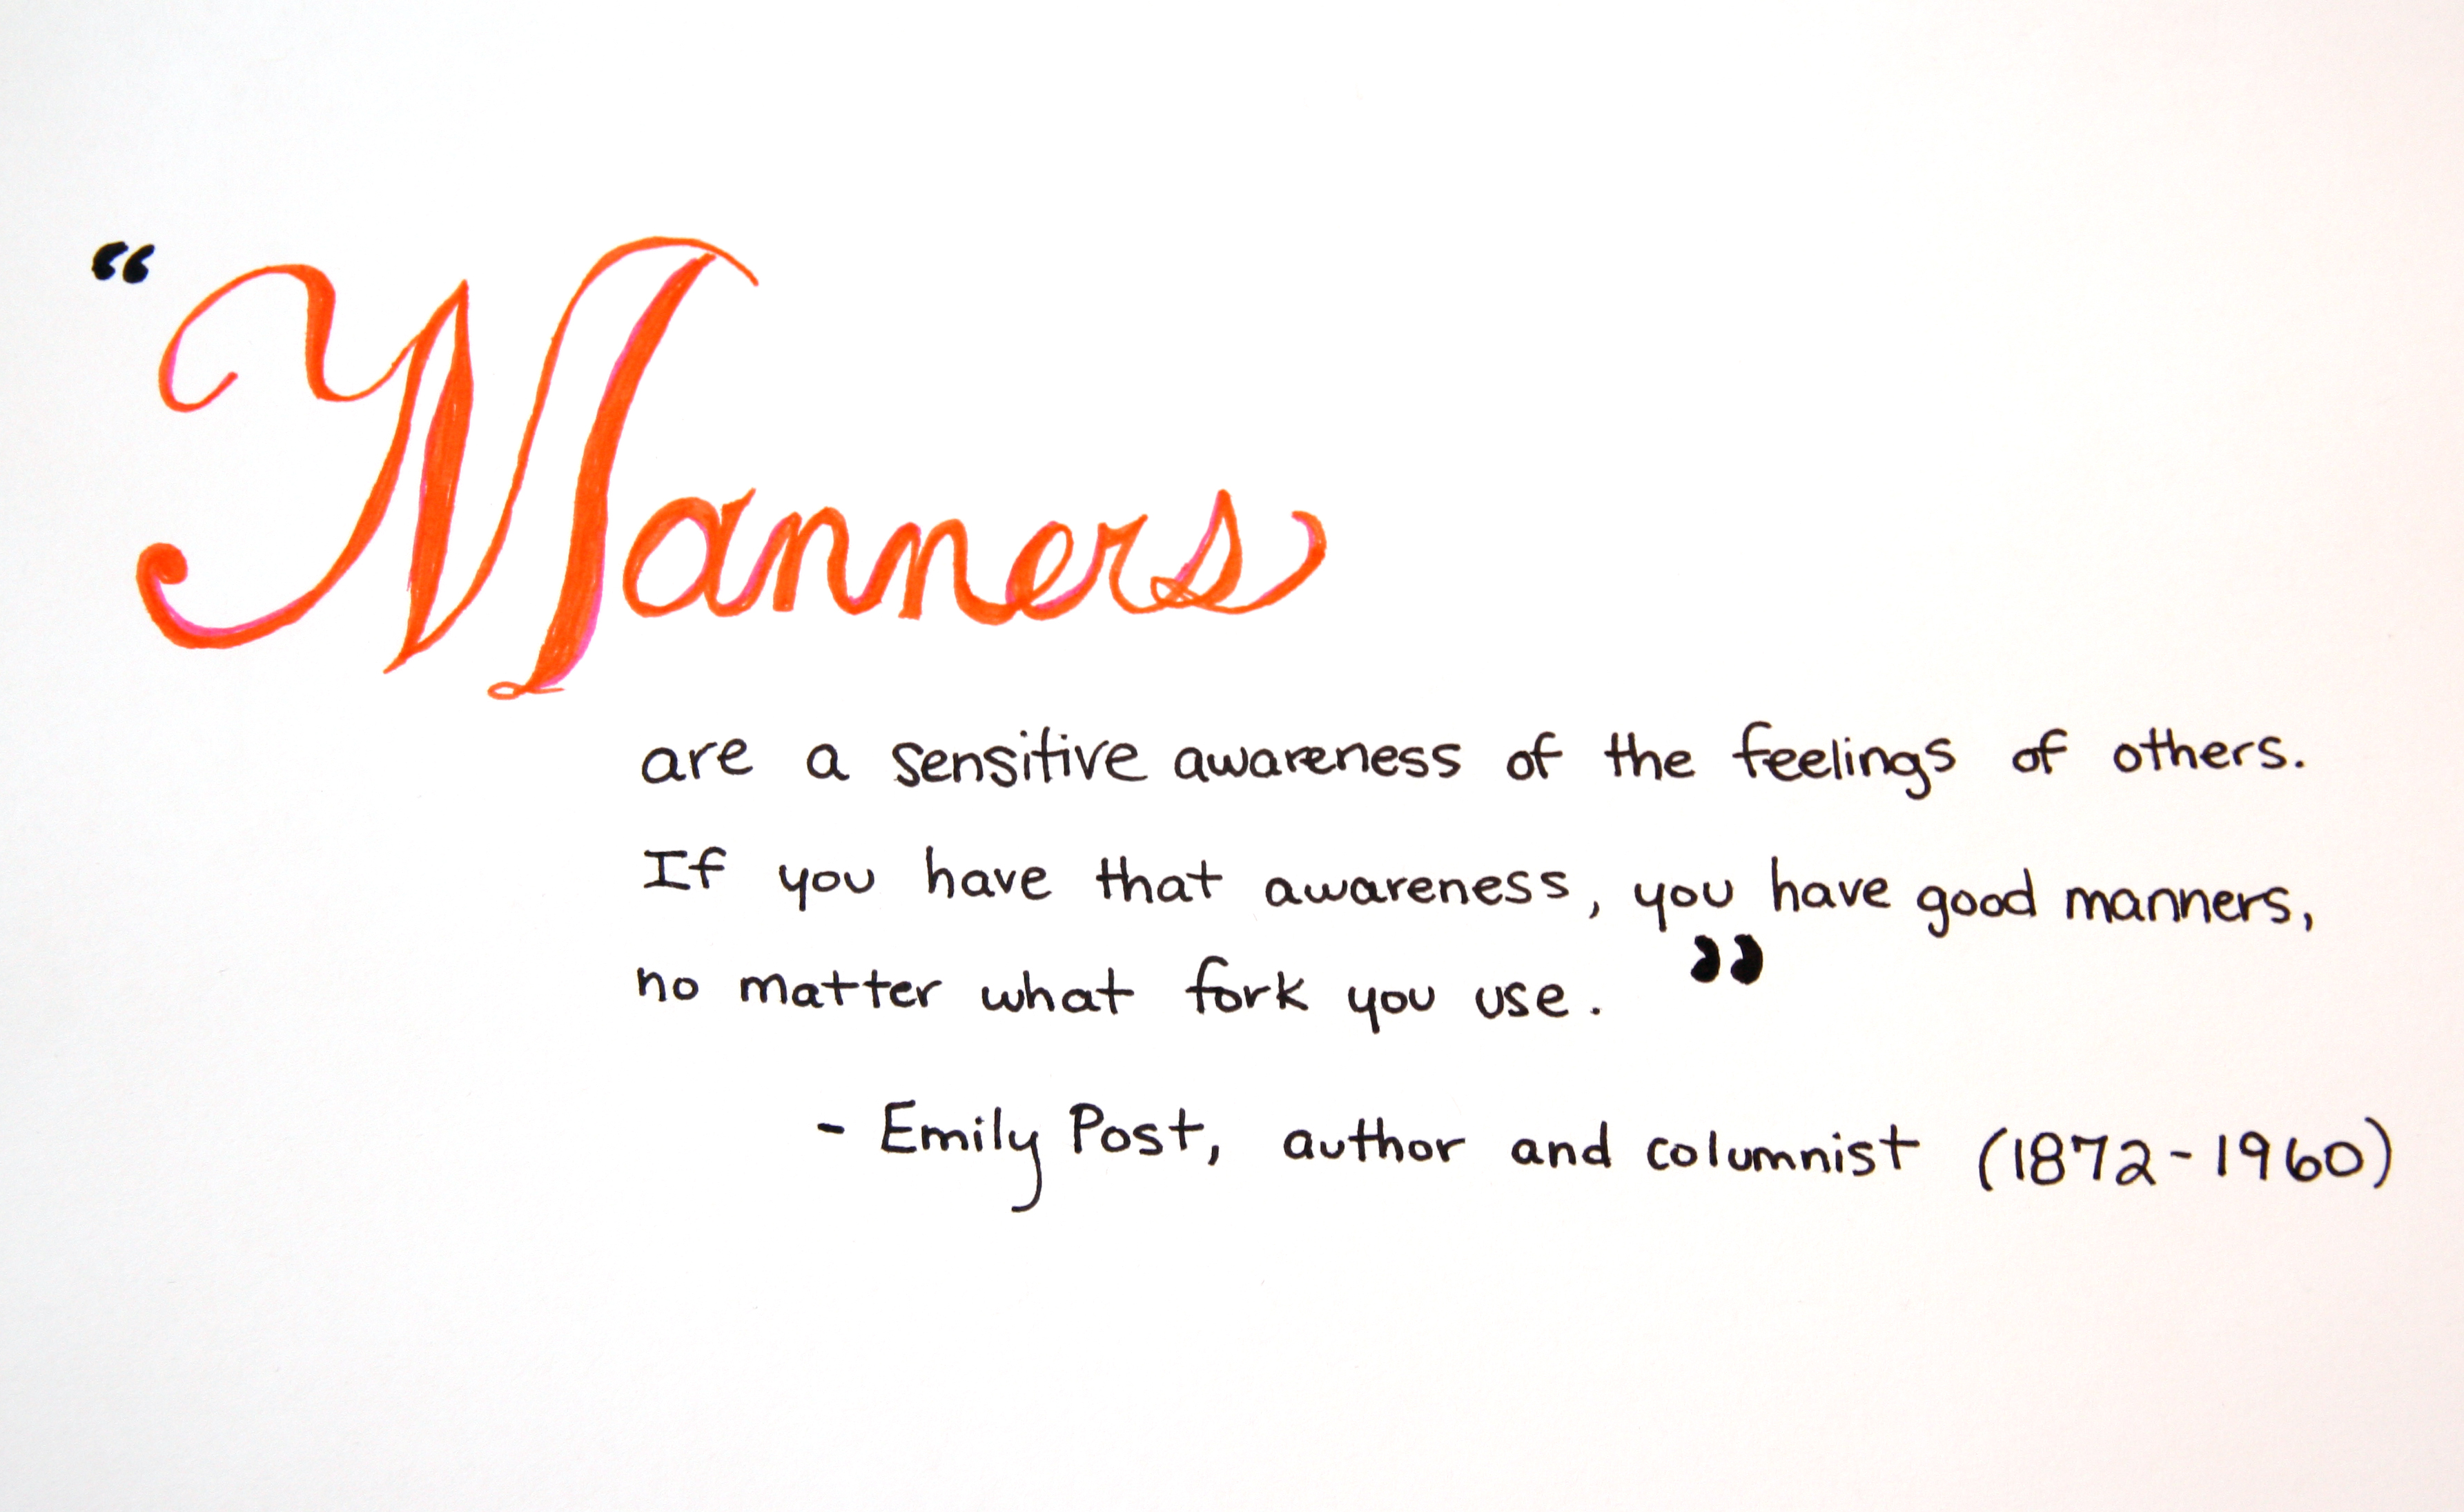 “Manners
are a sensitive awareness of the feelings of others.
If you have that awareness, you have good manners,
no matter what fork you use.”
- Emily Post, author and columnist (1872-1960)